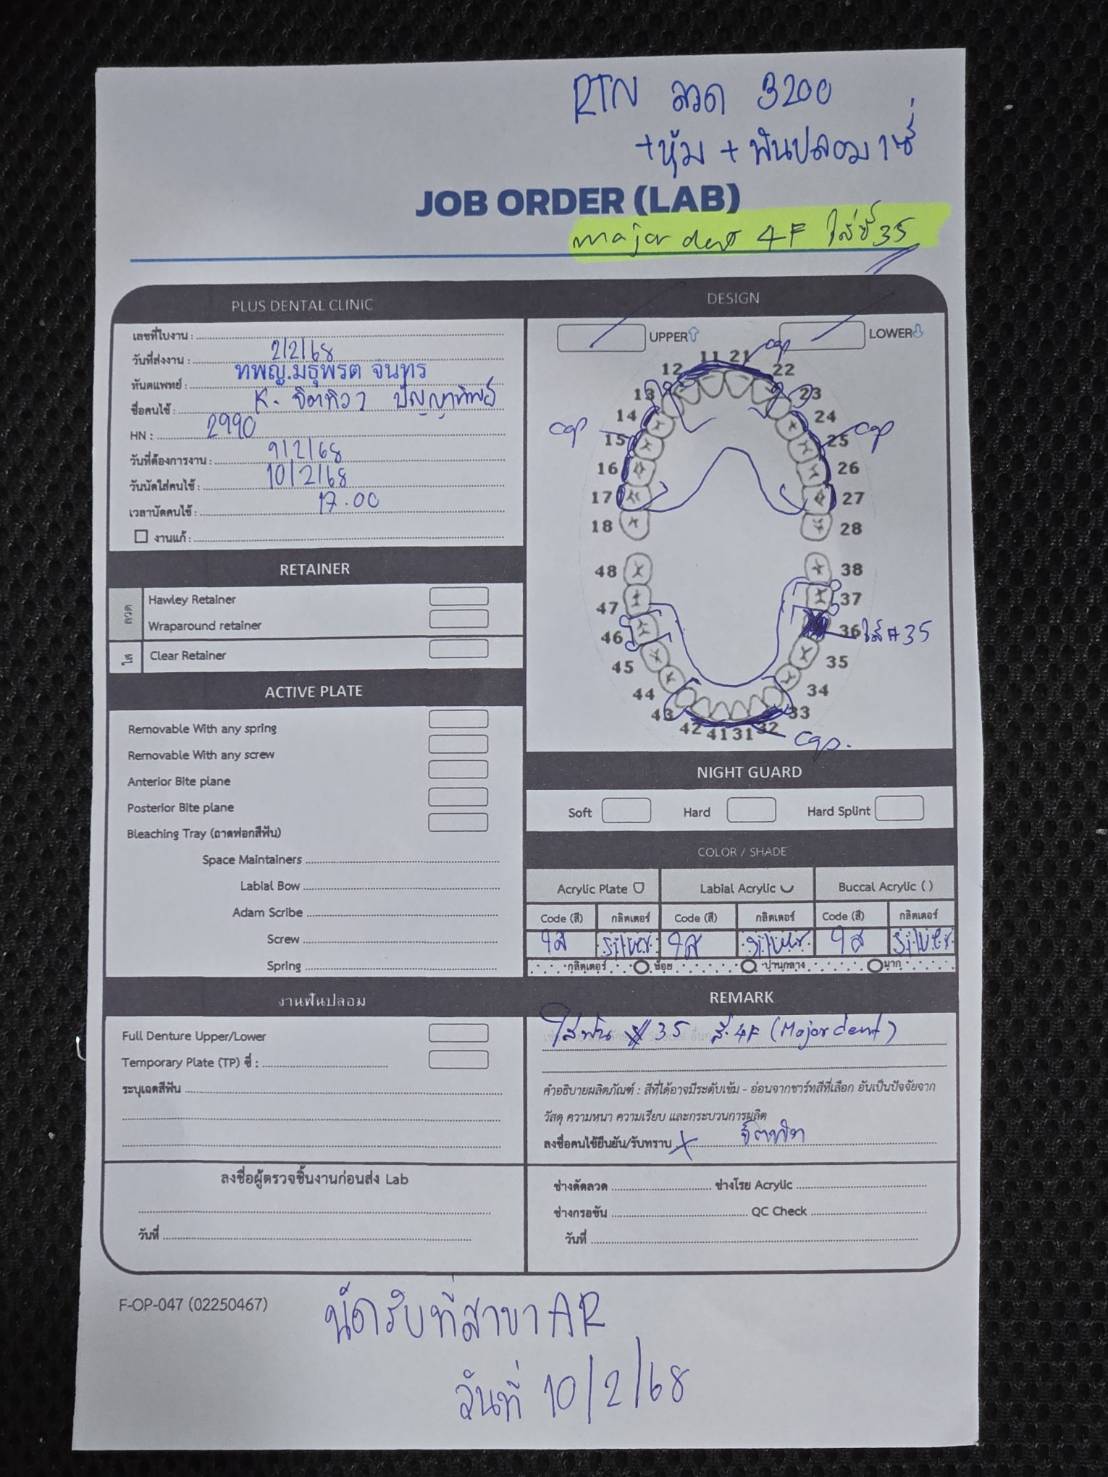 RTN ลวด 3200
+หุ้ม + ฟันปลอม 1 ซี่
JOB ORDER (LAB)
major dent 4F ใส่ซี่ 35
PLUS DENTAL CLINIC
เลขที่ใบงาน :
วันที่ส่งงาน : 2/2/68
ทันตแพทย์ : ทพญ.มธุพรต จันทร
ชื่อคนไข้ : K.
HN : 2990
วันที่ต้องการงาน : 9/2/68
วันนัดใส่คนไข้ : 10/2/68
เวลานัดคนไข้ : 17.00
งานแก้ :
RETAINER
ลวด
Hawley Retainer
Wraparound retainer
ใส
Clear Retainer
ACTIVE PLATE
Removable With any spring
Removable With any screw
Anterior Bite plane
Posterior Bite plane
Bleaching Tray (ถาดฟอกสีฟัน)
Space Maintainers
Labial Bow
Adam Scribe
Screw
Spring
งานฟันปลอม
Full Denture Upper/Lower
Temporary Plate (TP) ซี่ :
ระบุเฉดสีฟัน
ลงชื่อผู้ตรวจชิ้นงานก่อนส่ง Lab
วันที่
DESIGN
UPPER LOWER
11 21 cap
12 22
13 23
14 24
cap 15 25 cap
16 26
17 27
18 28
48 38
47 37
46 36 ใส่ #35
45 35
44 34
43 33
42 41 31 32 cap.
NIGHT GUARD
Soft Hard Hard Splint
COLOR / SHADE
Acrylic Plate Labial Acrylic Buccal Acrylic ( )
Code (สี) กลิตเตอร์ Code (สี) กลิตเตอร์ Code (สี) กลิตเตอร์
ใส silver ใส silver ใส silver
กลิตเตอร์ น้อย ปานกลาง มาก
REMARK
ใส่ฟัน # 35 สี 4F (Major dent)
คำอธิบายผลิตภัณฑ์ : สีที่ได้อาจมีระดับเข้ม - อ่อนจากชาร์ทสีที่เลือก อันเป็นปัจจัยจาก
วัสดุ ความหนา ความเรียบ และกระบวนการผลิต
ลงชื่อคนไข้ยืนยัน/รับทราบ X
ช่างดัดลวด ช่างโรย Acrylic
ช่างกรอขัน QC Check
วันที่
F-OP-047 (02250467)
นัดรับที่สาขา AR
วันที่ 10/2/68